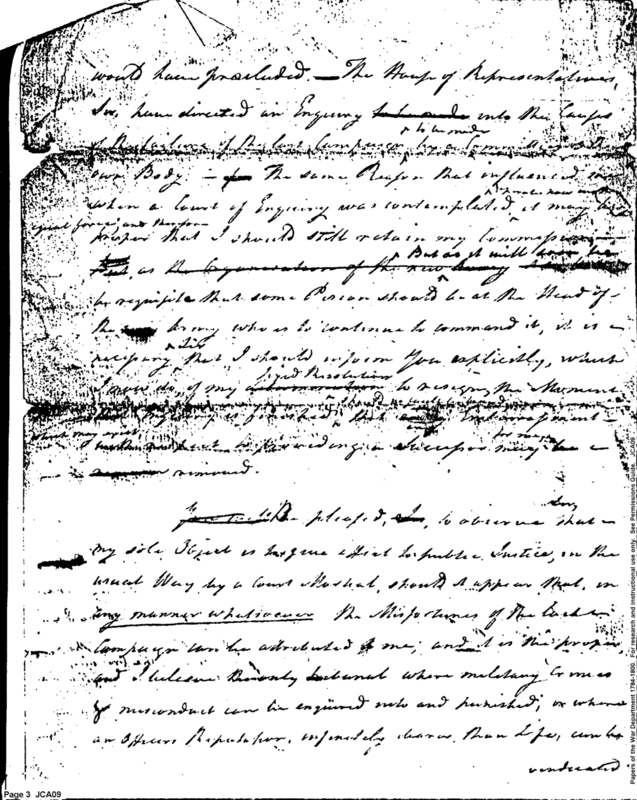 would have precluded — The House of Representatives,
Sir, have directed an Enquiry into the Causes
to be made
of the failure of the last Campaign by a Committee of their
own Body; — The same Reason that influenced
when a Court of Enquiry was contemplated, it may be
equal force; and therefore
proper that I should still retain my Commission
But as it will
But, as the Organization of the new Army
be requisite that some Person should be at the Head of
the Army who is to continue to command it, it is
Sir
necessary that I should inform You explicitly, which
fixed Resolution
I now do, of my to resign the Moment
is finished, that Embarrassment
with respect to providing a Successor may be
removed.
be pleased, Sir, to observe that
my sole Object is to give effect to public Justice, in the
usual Way by a Court Martial, should it appear that, in
any manner whatsoever the Misfortunes of the last
Campaign can be attributed to me; and it is the proper
and I believe the only tribunal where military Crimes
& misconduct can be enquired into and punished; or where
an Officers Reputation, infinitely dearer than Life, can be
vindicated
Page 3 JCA09
Papers of the War Department 1784-1800. For research and instructional use only. See Permissions Guide. JCA09